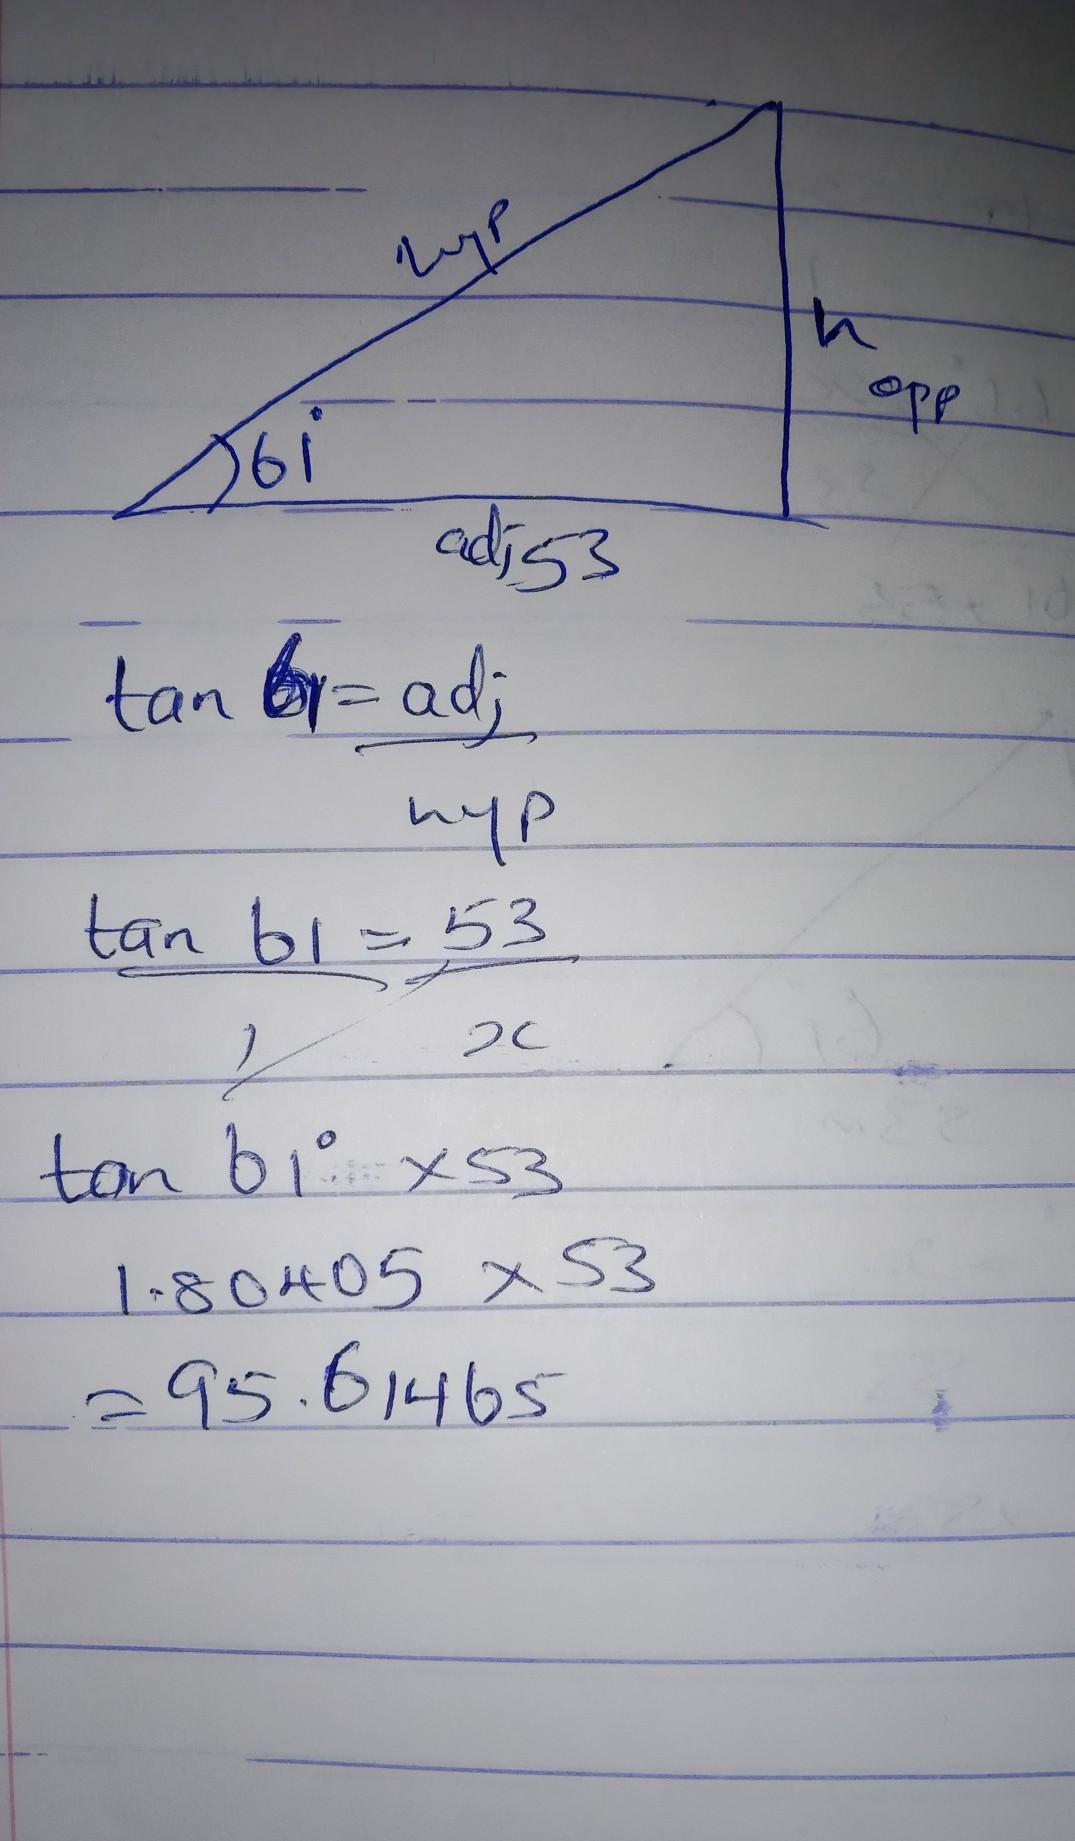 hyp
h
opp
61°
adj 53
tan 61 = adj
hyp
tan 61 = 53
1 x
tan 61° x 53
1.80405 x 53
= 95.61465